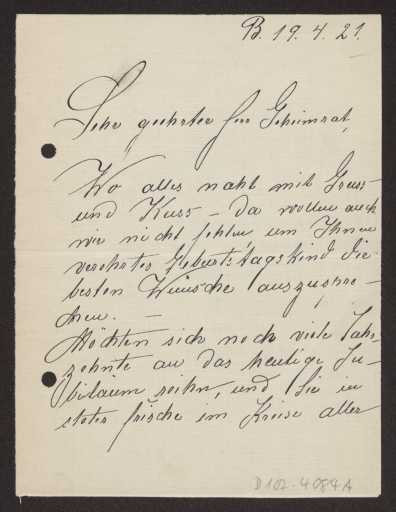 B. 19. 4. 21.
Sehr geehrter Herr Geheimrat,
Wo alles naht mit Gruss
und Kuss – da wollen auch
wir nicht fehlen um Ihnen
verehrtes Geburtstagskind die
besten Wünsche auszuspre-
chen. —
Möchten sich noch viele Jahr-
zehnte an das heutige Ju-
biläum reihn, und Sie in
steter frische im Kreise aller
D 102-4084A